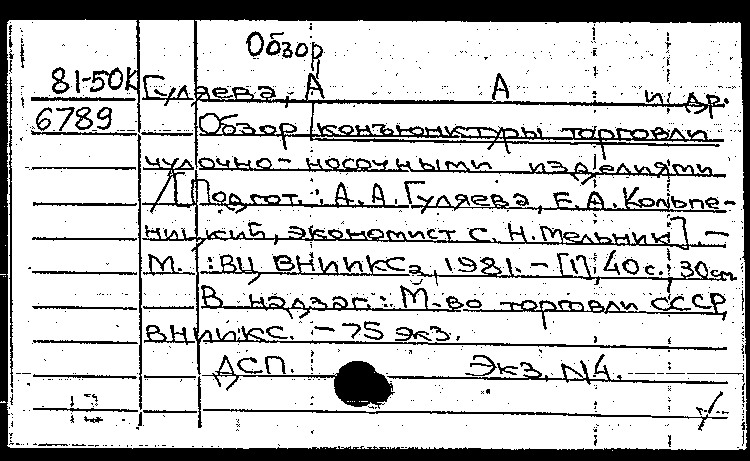 Обзор
81-50К Гуляева, А А и др.
6789 Обзор конъюнктуры торговли
чулочно-носочными изделиями
/[Подгот.: А.А.Гуляева, Е.А.Кольпе-
ницкий, экономист С.Н.Мельник]. –
М. : ВЦ ВНИИКС, 1981. – [1], 40 с.; 30 см
В надзаг.: М-во торговли СССР,
ВНИИКС. – 75 экз.
ДСП. Экз. N4.